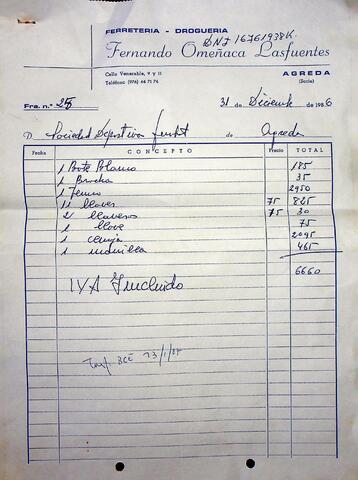 FERRETERIA - DROGUERIA
DNI 16761938K.
Fernando Omeñaca Lasfuentes
Calle Venerable, 9 y 11
Teléfono: (976) 64 71 74
AGREDA
(Soria)
Fra. n.º 25
31 de Diciemb de 1986
D. Sociedad Deportiva de Agreda
Fecha CONCEPTO Precio TOTAL
1 Bote Blanco 185
1 Brocha 35
1 2950
11 llaves 75 825
2 llaveros 75 30
1 llave 75
1 2095
1 465
6660
IVA Incluido
BCE 13/1/87